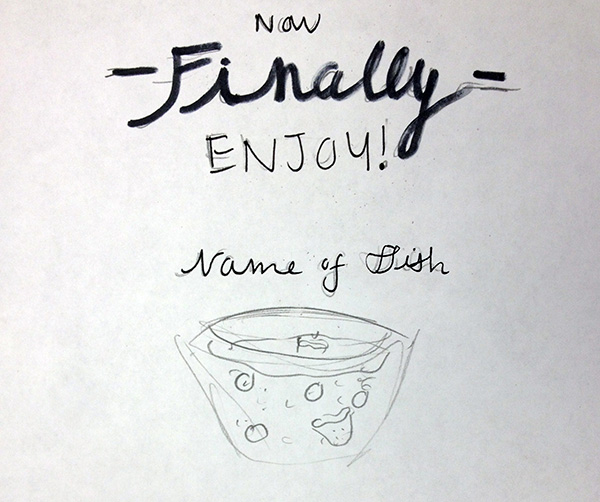 Now
-Finally-
ENJOY!
Name of Dish